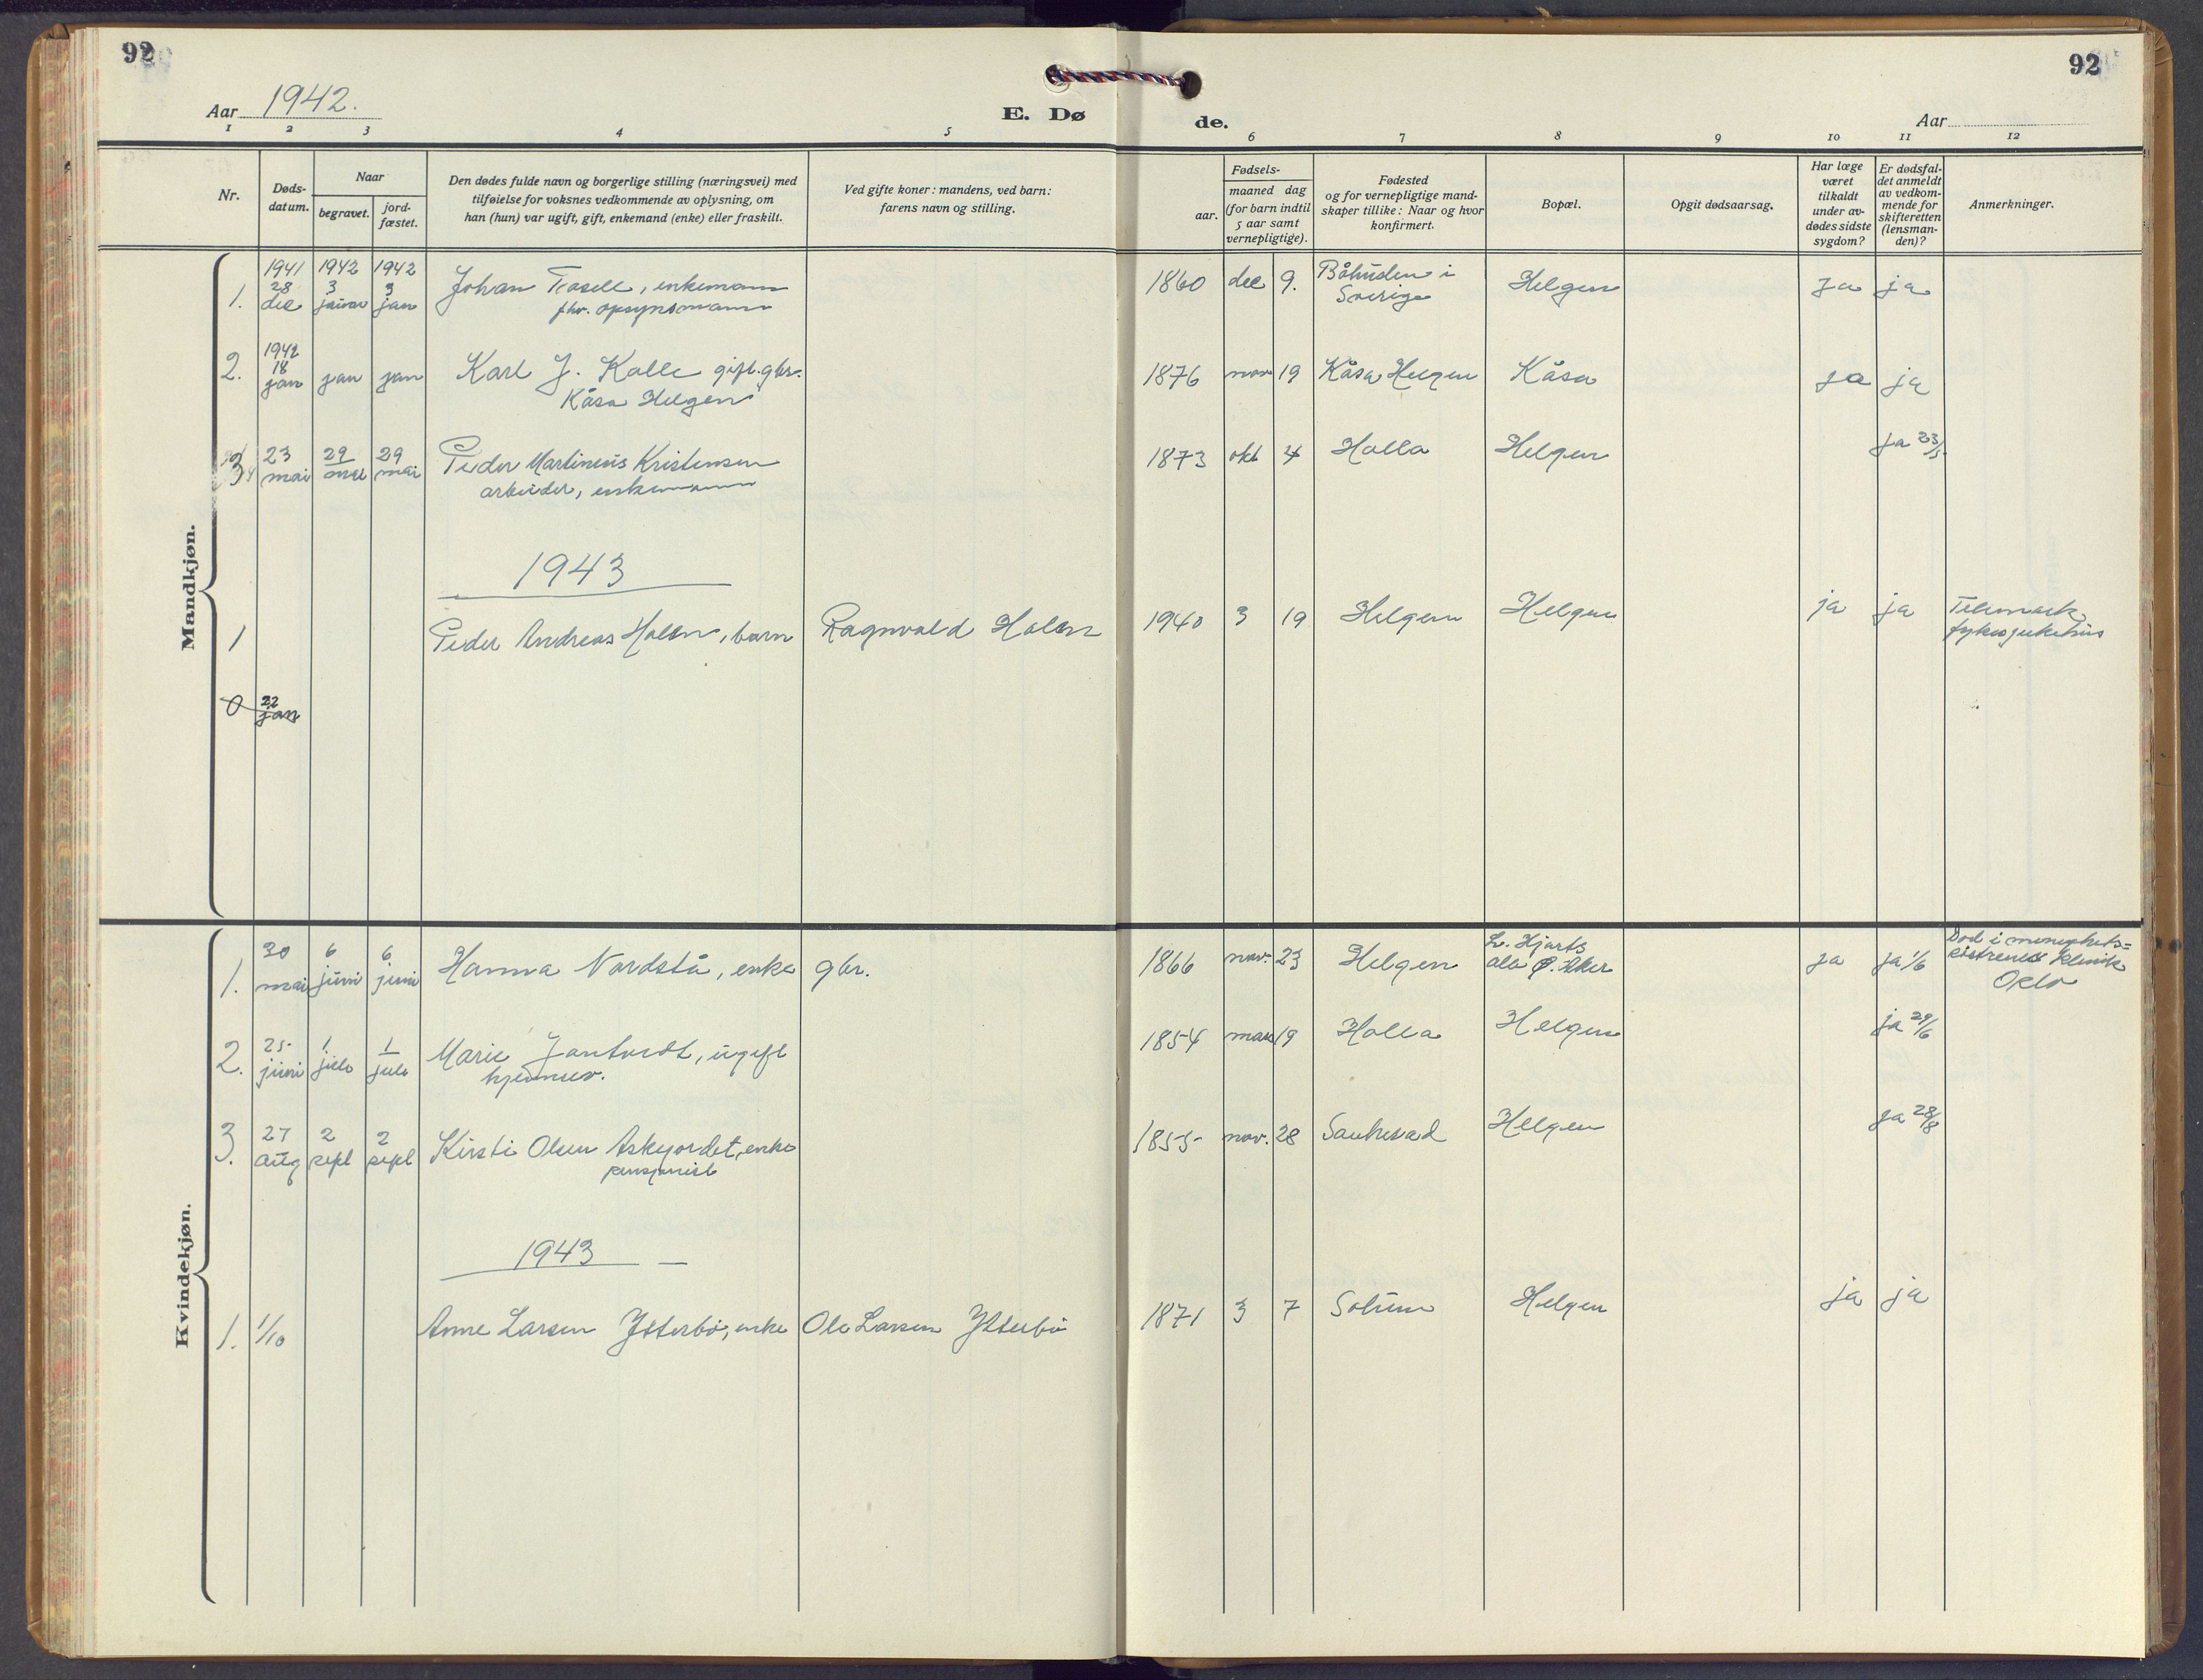 92
92
Aar 1942.
E. Dø
de.
Aar
1 2 3 4 5 6 7 8 9 10 11 12
Nr.
Døds-
datum.
Naar
begravet.
jord-
fæstet.
Den dødes fulde navn og borgerlige stilling (næringsvei) med
tilføielse for voksnes vedkommende av oplysning, om
han (hun) var ugift, gift, enkemand (enke) eller fraskilt.
Ved gifte koner: mandens, ved barn:
farens navn og stilling.
Fødsels-
aar.
maaned dag
(for barn indtil
5 aar samt
vernepligtige).
Fødested
og for vernepligtige mand-
skaper tillike: Naar og hvor
konfirmert.
Bopæl.
Opgit dødsaarsag.
Har læge
været
tilkaldt
under av-
dødes sidste
sygdom?
Er dødsfal-
det anmeldt
av vedkom-
mende for
skifteretten
(lensman-
den)?
Anmerkninger.
Mandkjøn.
1941 1942 1942
28 3 3
1. des januar jan Johan Tasell, enkemann 1860 des 9. Båhuslen i Helgen Ja ja
fhv. opsynsmann Sverige
1942
18
2. jan jan jan Karl J. Kalle gift. gbr. 1876 nov 19 Kåsa Helgen Kåsa ja ja
Kåsa Helgen
3 23 29 29 Peder Martinius Kristensen 1873 okt 4 Holla Helgen Ja 23/5
mai mai mai arbeider, enkemann
1943
1 Peder Andreas Holen, barn Ragnvald Holen 1940 3 19 Helgen Helgen ja ja Telemark
fylkesjukehus
0 22
jan
Kvindekjøn.
30 6 6
1. mai juni juni Hanna Nordstå, enke gbr. 1866 nov. 23 Helgen ja ja 1/6 Død i menighets=
Aker klinik
Oslo
2. 25 1 1 Marie Jantvedt, ugift 1854 mars 19 Holla Helgen ja 29/6
juni juli juli
3. 27 2 2 Kirsti Olsen Askjordet, enke 1855 nov. 28 Sauherad Helgen ja 28/8
aug sept sept pensjonist
1943
1. 1/10 Anne Larsen Ytterbø, enke Ole Larsen Ytterbø 1871 3 7 Solum Helgen ja ja